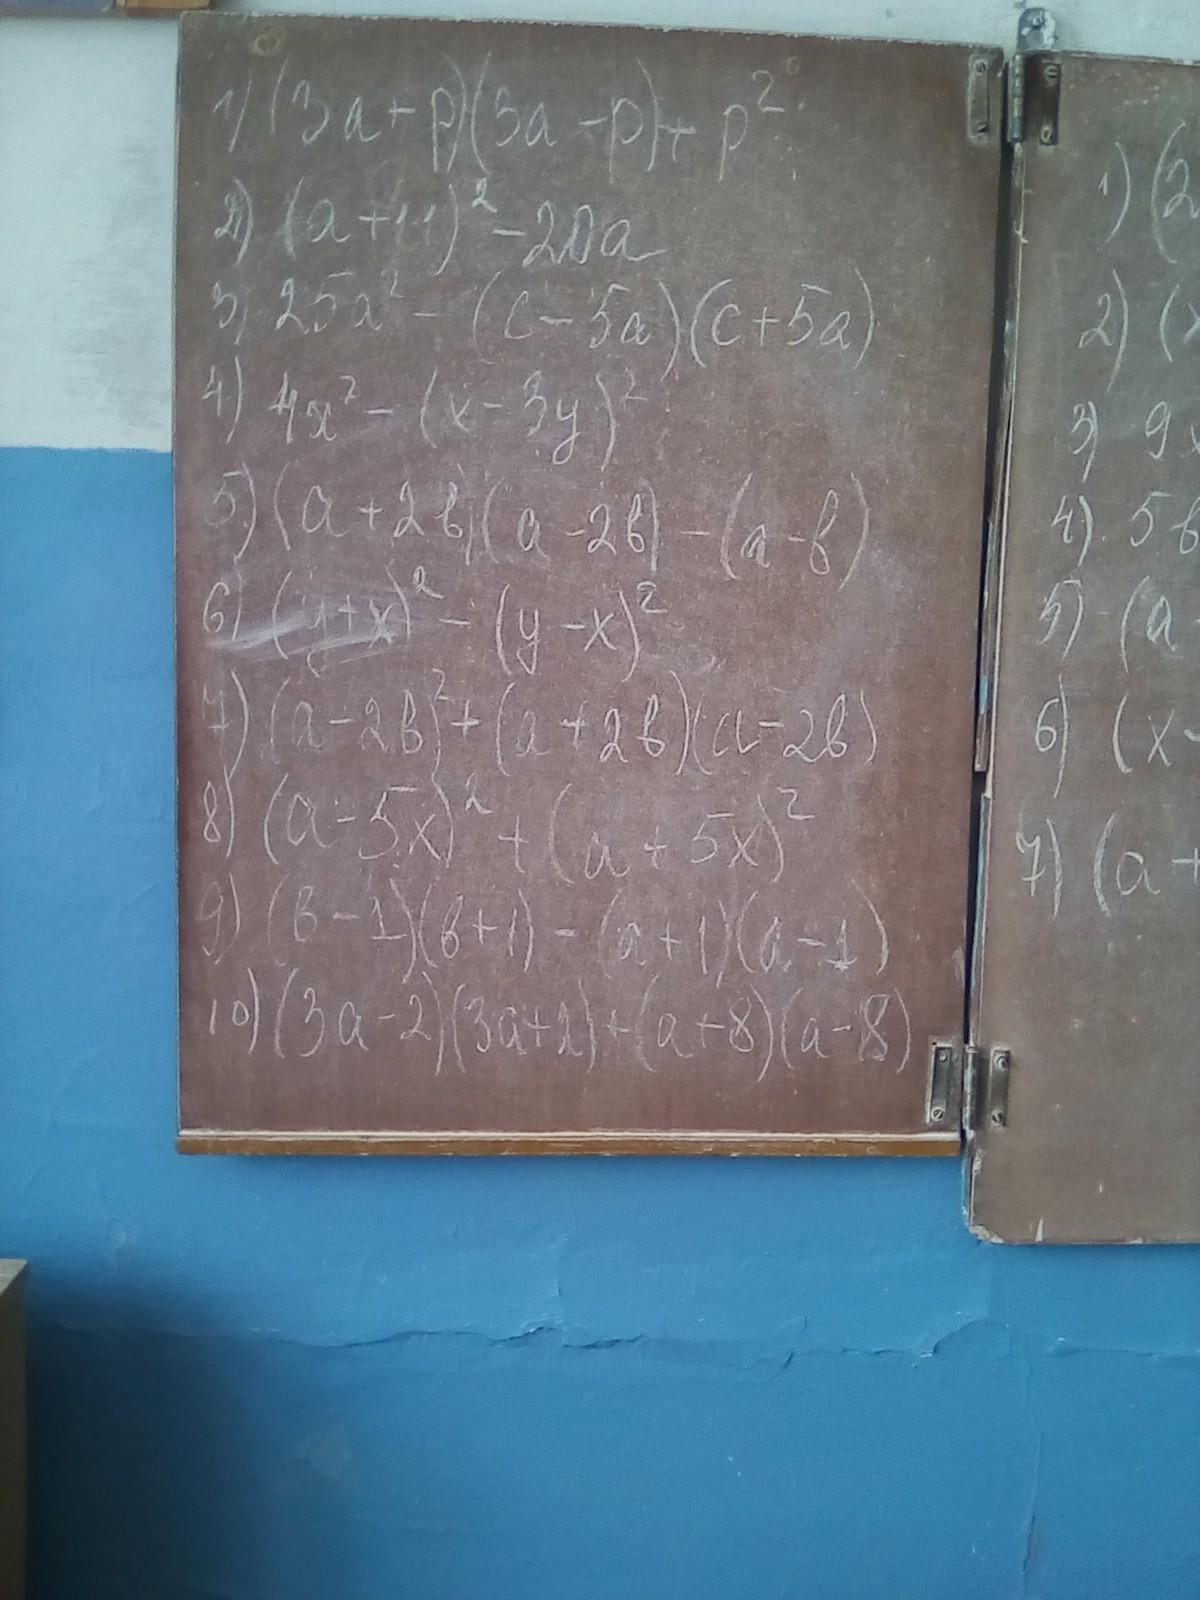 1) (3a+p)(3a-p)+p²
2) (a+11)²-20a
3) 25a²-(c-5a)(c+5a)
4) 4x²-(x-3y)²
5) (a+2b)(a-2b)-(a-b)
6) (y+x)²-(y-x)²
7) (a-2b)²+(a+2b)(a-2b)
8) (a-5x)²+(a+5x)²
9) (b-1)(b+1)-(a+1)(a-1)
10) (3a-2)(3a+2)+(a+8)(a-8)
1) (2
2) (x
3) 9x
4) 5b
5) (a
6) (x-
7) (a+